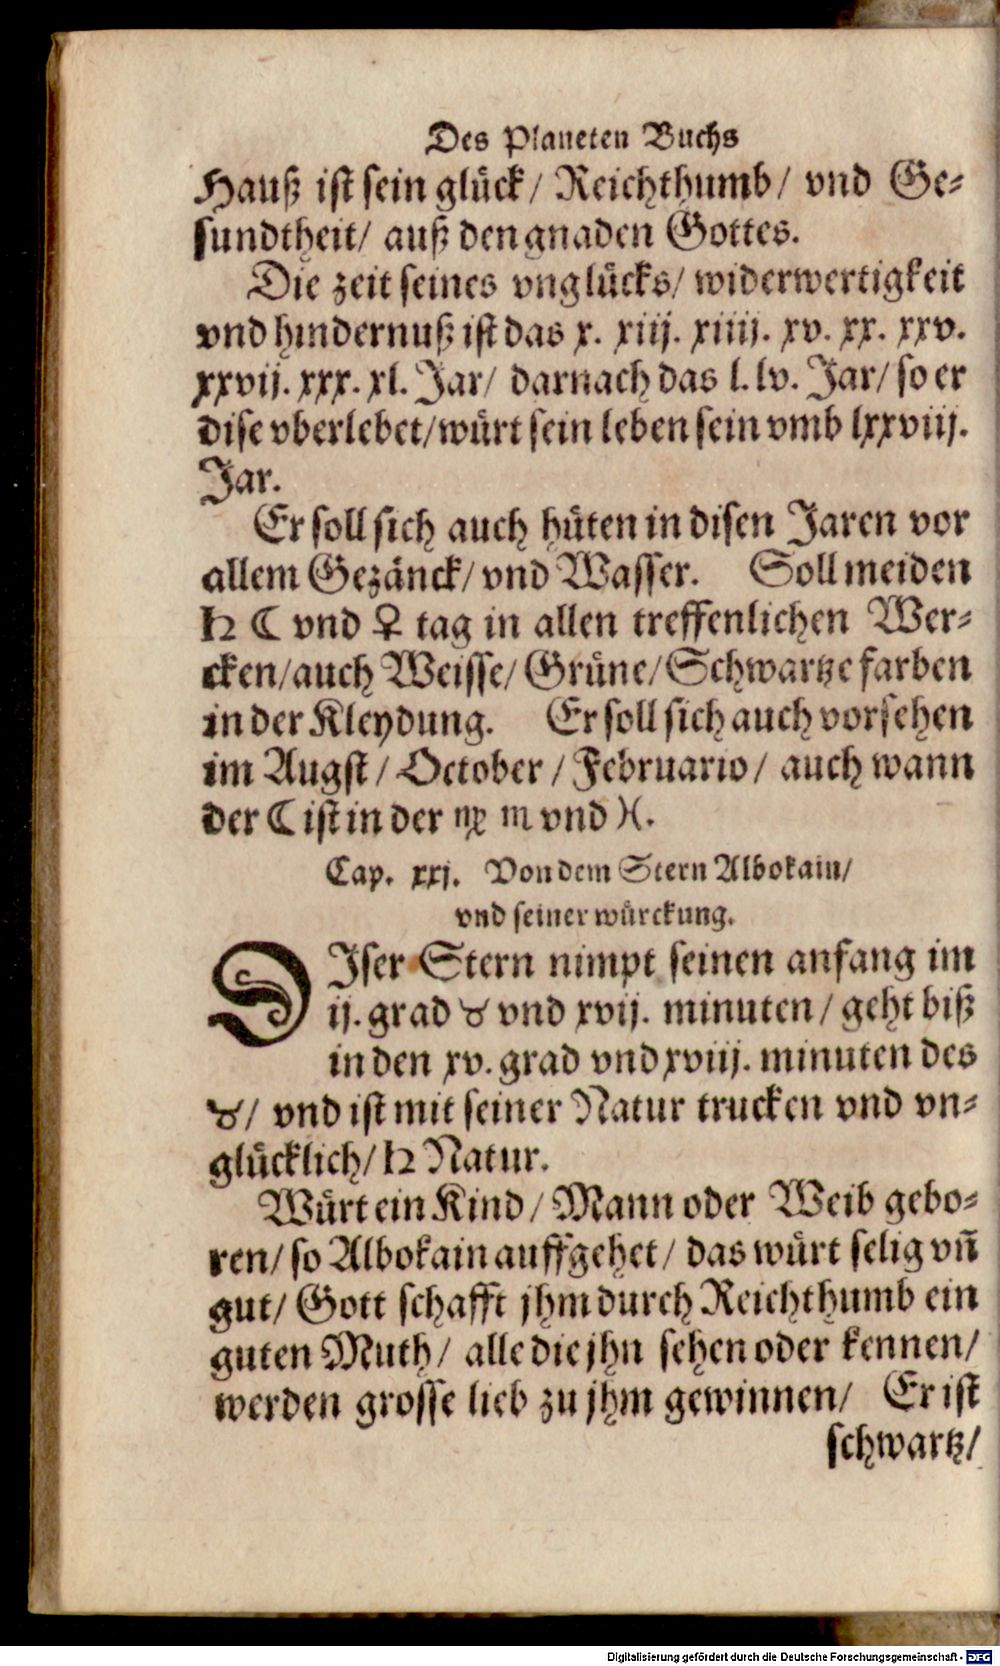 Des Planeten Buchs
Hauß ist sein glück/ Reichthumb/ vnd Ge-
sundtheit/ auß den gnaden Gottes.
Die zeit seines vnglücks/ widerwertigkeit
vnd hindernuß ist das x. xiij. xiiij. xv. xx. xxv.
xxvij. xxx. xl. Jar/ darnach das l. lv. Jar/ so er
dise vberlebet/ würt sein leben sein vmb lxxviij.
Jar.
Er soll sich auch hüten in disen Jaren vor
allem Gezänck/ vnd Wasser. Soll meiden
♄ ☾ vnd ♀ tag in allen treffenlichen Wer-
cken/ auch Weisse/ Grüne/ Schwartze farben
in der Kleydung. Er soll sich auch vorsehen
im Augst/ October/ Februario/ auch wann
der ☾ ist in der ♍ ♏ vnd ♓.
Cap. xxj. Von dem Stern Albokain/
vnd seiner würckung.
DIser Stern nimpt seinen anfang im
ij. grad ♉ vnd xvij. minuten/ geht biß
in den xv. grad vnd xviij. minuten des
♉/ vnd ist mit seiner Natur trucken vnd vn-
glücklich/ ♄ Natur.
Würt ein Kind/ Mann oder Weib gebo-
ren/ so Albokain auffgehet/ das würt selig vñ
gut/ Gott schafft jhm durch Reichthumb ein
guten Muth/ alle die jhn sehen oder kennen/
werden grosse lieb zu jhm gewinnen/ Er ist
schwartz/
Digitalisierung gefördert durch die Deutsche Forschungsgemeinschaft - DFG